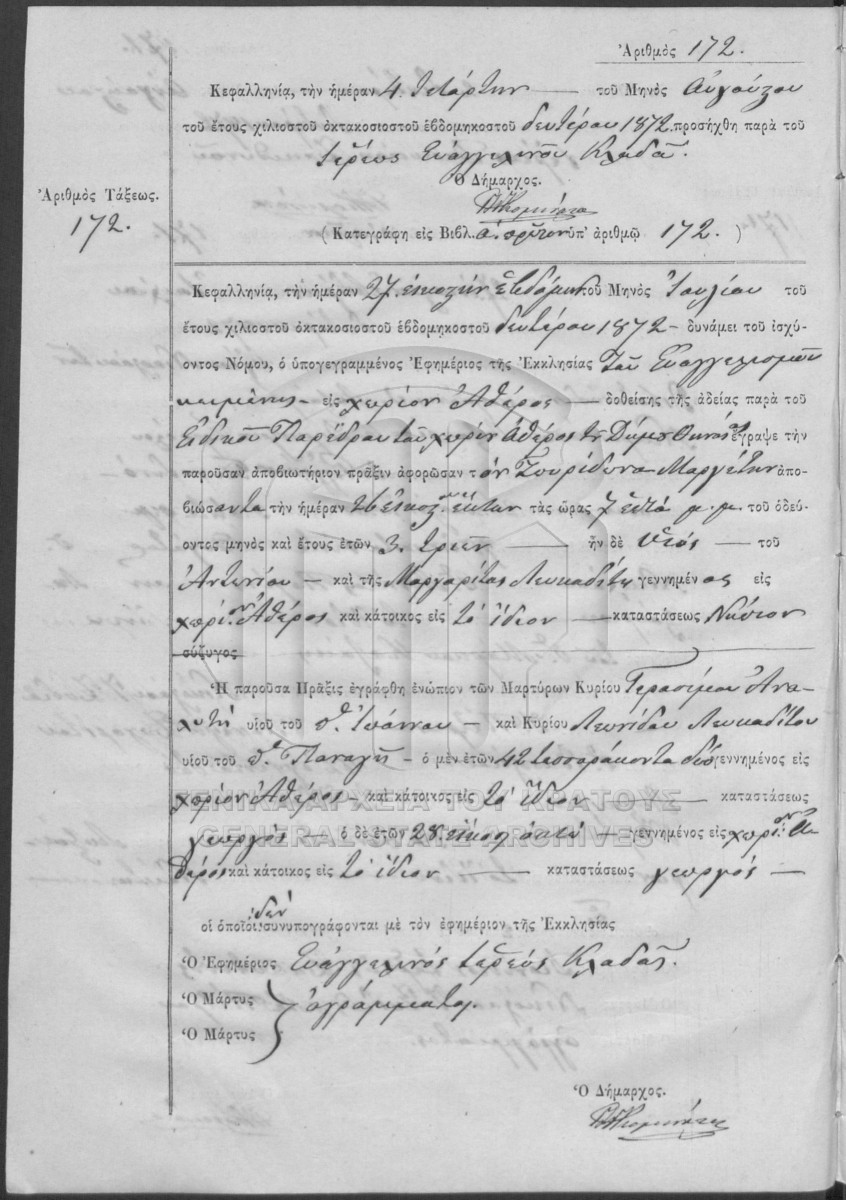 Ἀριθμὸς 172.
Κεφαλληνίᾳ, τὴν ἡμέραν 4 τετάρτην — τοῦ Μηνὸς Αὐγούστου
τοῦ ἔτους χιλιοστοῦ ὀκτακοσιοστοῦ ἑβδομηκοστοῦ δευτέρου 1872. προσήχθη παρὰ τοῦ
Ἱερέως Εὐαγγελινοῦ Κλαδᾶ.
Ὁ Δήμαρχος.
Ἀριθμὸς Τάξεως.
172.
(Κατεγράφη εἰς Βιβλ. Α. πρῶτον ὑπ' ἀριθμῷ 172.)
Κεφαλληνίᾳ, τὴν ἡμέραν 27. εἰκοστὴν ἑβδόμην τοῦ Μηνὸς Ἰουλίου τοῦ
ἔτους χιλιοστοῦ ὀκτακοσιοστοῦ ἑβδομηκοστοῦ δευτέρου 1872 — δυνάμει τοῦ ἰσχύ-
οντος Νόμου, ὁ ὑπογεγραμμένος Ἐφημέριος τῆς Ἐκκλησίας τοῦ Εὐαγγελισμοῦ
κειμένης — εἰς χωρίον Ἀθέρος — δοθείσης τῆς ἀδείας παρὰ τοῦ
Εἰδικοῦ Παρέδρου τοῦ χωρίου Ἀθέρος τοῦ Δήμου ἔγραψε τὴν
παροῦσαν ἀποβιωτήριον πρᾶξιν ἀφορῶσαν τὸν Σπυρίδωνα Μαργέτην ἀπο-
βιώσαντα τὴν ἡμέραν 26 εἰκοστὴν ἕκτην τὰς ὥρας 7 ἑπτὰ μ.μ. τοῦ ὁδεύ-
οντος μηνὸς καὶ ἔτους ἐτῶν 3. τριῶν — ἦν δὲ υἱὸς — τοῦ
Ἀντωνίου — καὶ τῆς Μαργαρίτας Λευκαδίτη γεννημένος εἰς
χωρίον Ἀθέρος καὶ κάτοικος εἰς τὸ ἴδιον — καταστάσεως Νήπιον
σύζυγος
Ἡ παροῦσα Πρᾶξις ἐγράφθη ἐνώπιον τῶν Μαρτύρων Κυρίου Γερασίμου Ἀνα-
λυτῆ υἱοῦ τοῦ π. Ἰωάννου — καὶ Κυρίου Λεωνίδου Λευκαδίτου
υἱοῦ τοῦ π. Παναγῆ — ὁ μὲν ἐτῶν 42 τεσσαράκοντα δύο γεννημένος εἰς
χωρίον Ἀθέρος — καὶ κάτοικος εἰς τὸ ἴδιον — καταστάσεως
γεωργὸς — ὁ δὲ ἐτῶν 28 εἴκοσι ὀκτὼ — γεννημένος εἰς χωρίον Ἀ-
θέρος καὶ κάτοικος εἰς τὸ ἴδιον — καταστάσεως γεωργὸς —
οἱ ὁποῖοι δὲν συνυπογράφονται μὲ τὸν ἐφημέριον τῆς Ἐκκλησίας
Ὁ Ἐφημέριος Εὐαγγελινὸς ἱερεὺς Κλαδᾶς.
Ὁ Μάρτυς } ἀγράμματοι.
Ὁ Μάρτυς
Ὁ Δήμαρχος.
ΓΕΝΙΚΑ ΑΡΧΕΙΑ ΤΟΥ ΚΡΑΤΟΥΣ
GENERAL STATE ARCHIVES